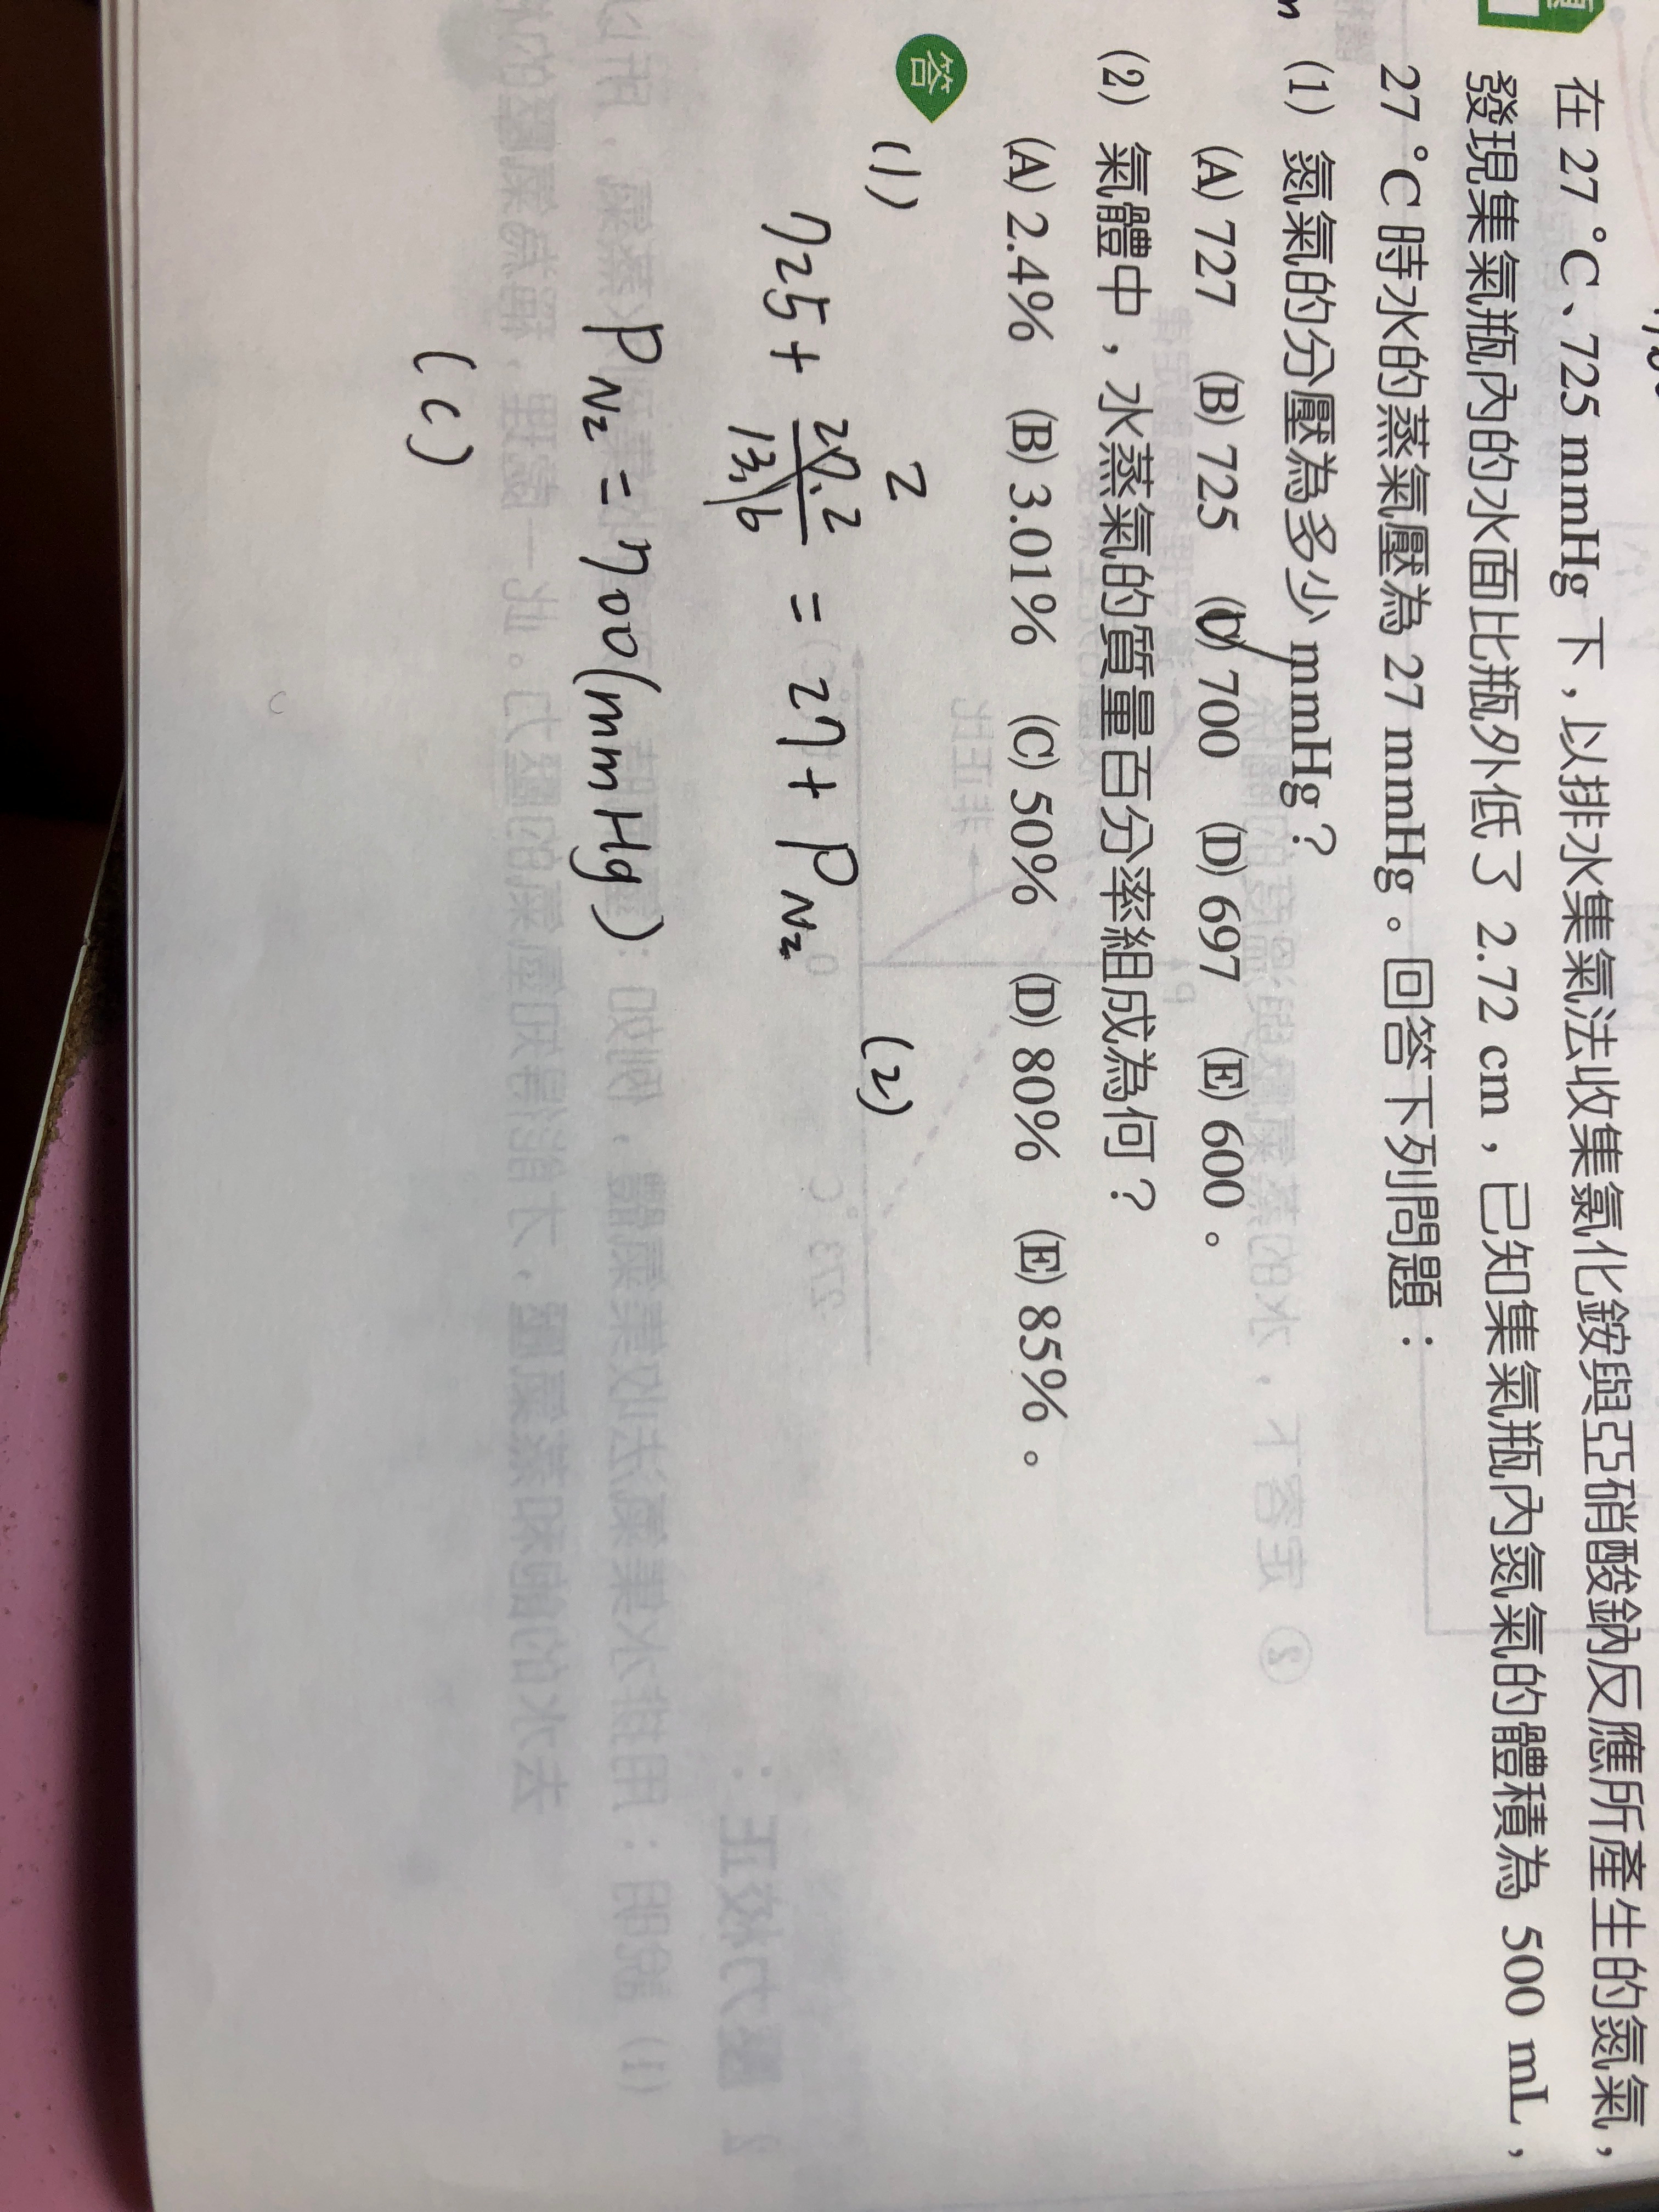 在 27 °C、725 mmHg 下，以排水集氣法收集氯化銨與亞硝酸鈉反應所產生的氮氣，
發現集氣瓶內的水面比瓶外低了 2.72 cm，已知集氣瓶內氮氣的體積為 500 mL，
27 °C 時水的蒸氣壓為 27 mmHg。回答下列問題：
(1) 氮氣的分壓為多少 mmHg？
(A) 727 (B) 725 (C) 700 (D) 697 (E) 600。
(2) 氣體中，水蒸氣的質量百分率組成為何？
(A) 2.4% (B) 3.01% (C) 50% (D) 80% (E) 85%。
答
(1)
2
725 + 27.2/13.6 = 27 + PN2
PN2 = 700 (mmHg)
(C)
(2)